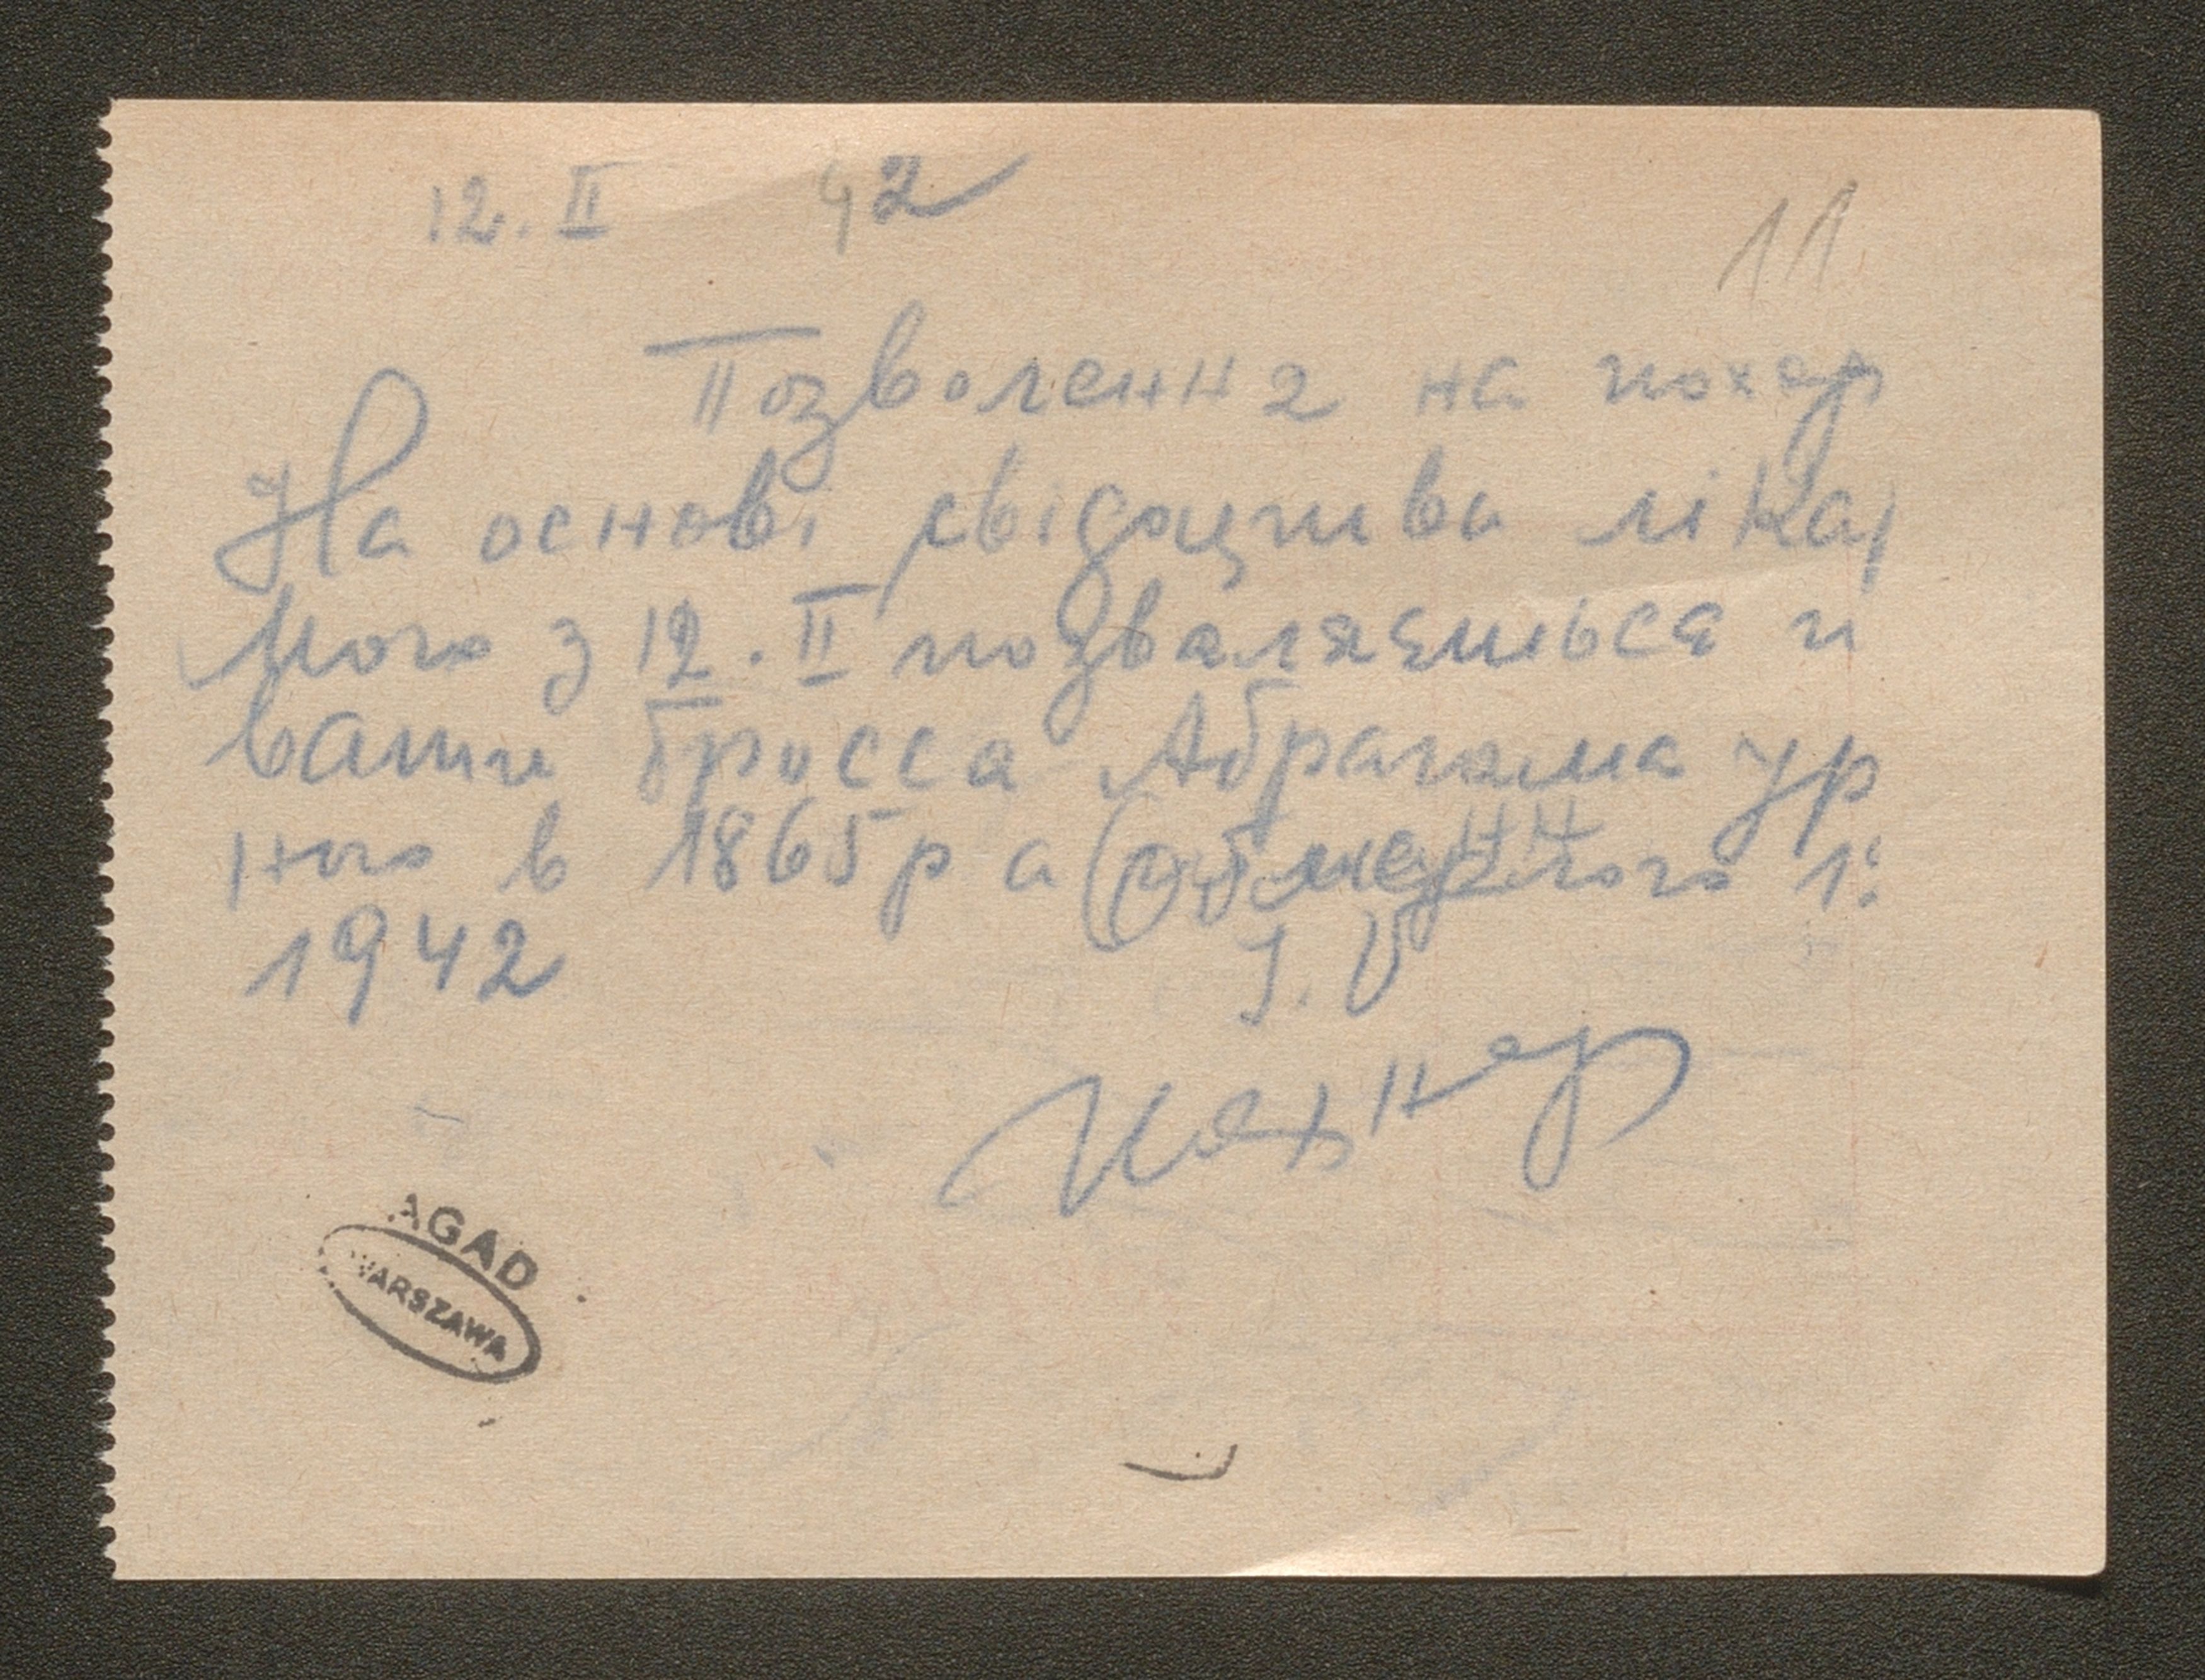 12. II 42
11
Позволення на похор
На основі свідоцтва ліка
мого з 12. II позваляється п
вати Гросса Абрагама ур
ного в 1865 р а
1942
AGAD
WARSZAWA